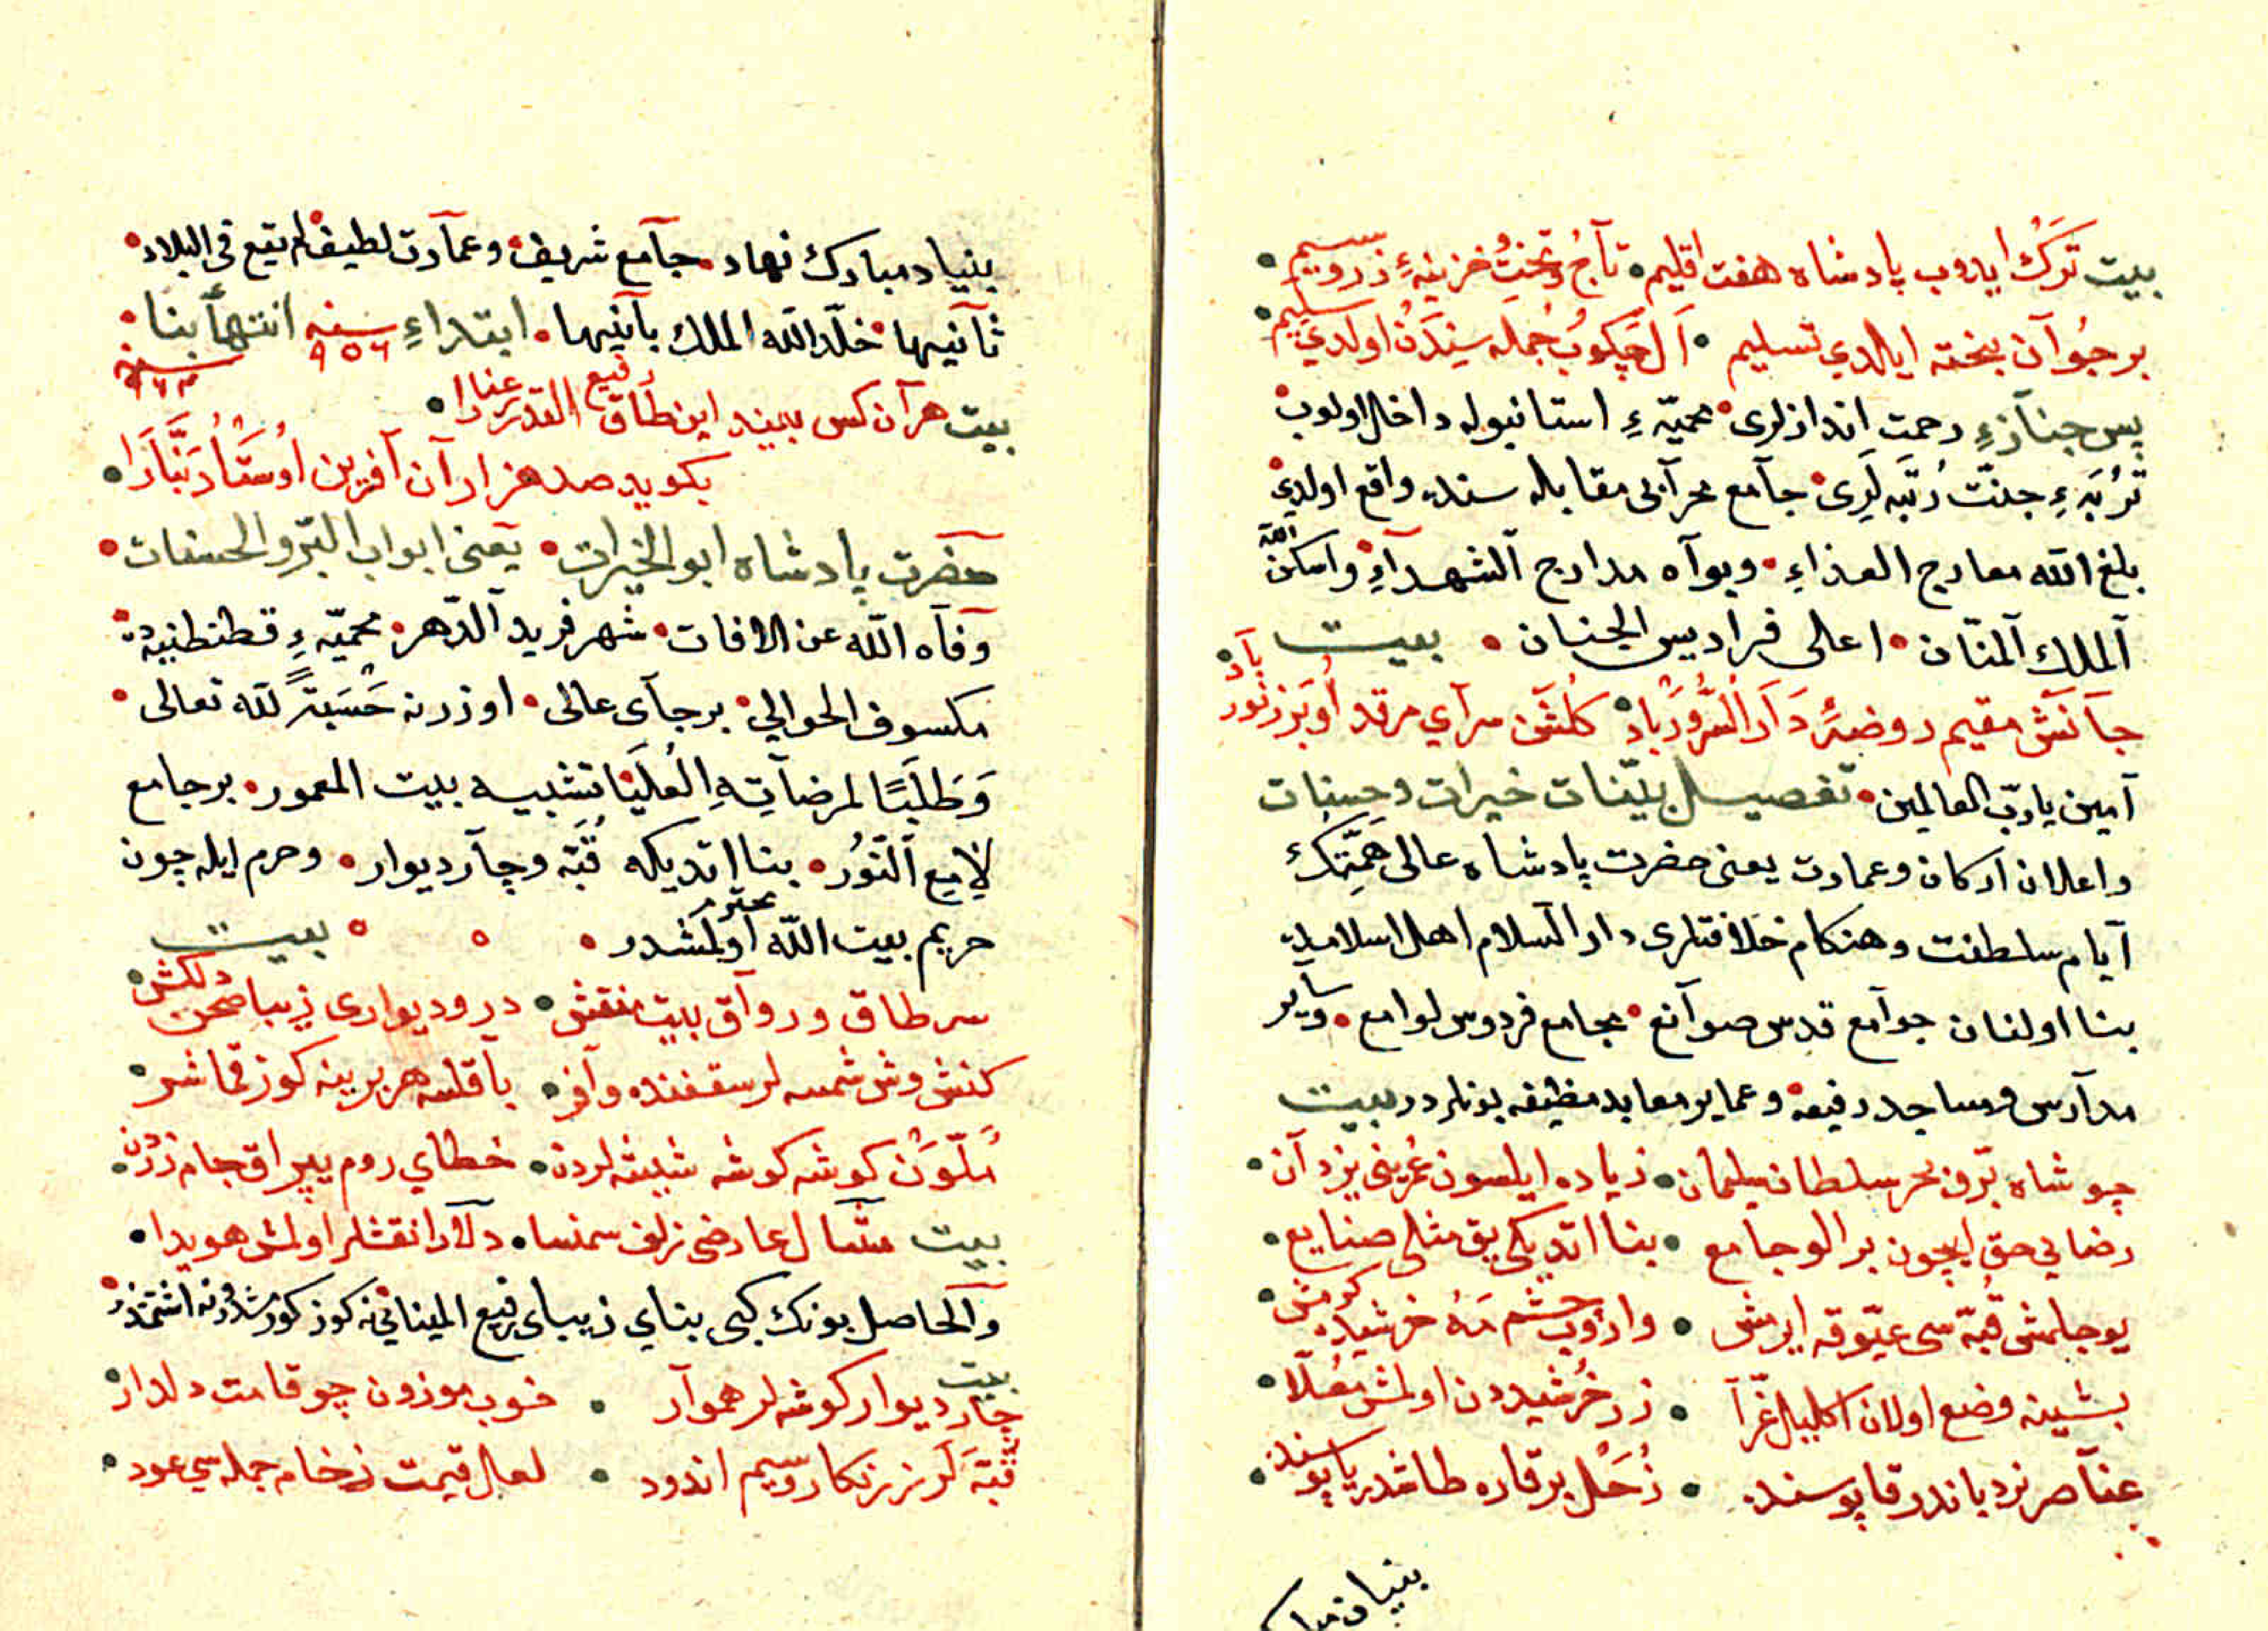 بيت ترك ايدوب پادشاه هفت اقليم تاج و تخت خزينهء زر و سيم
بر جوان بخته ايلدي تسليم ال چكوب جمله سيندن اولدي سليم
پس جنازهء رحمت اندازلرى محميّهء استانبوله داخل اولوب
تربهء جنّت رتبه لرى جامع محرابى مقابله سنده واقع اولدي
بلغ الله معارج الغذاء وبوآه مدارج الشهداء واسكن الله
الملك المنّان اعلى فراديس الجنان بيت
جانش مقيم روضهٔ دار السرور باد گلشن سراي مرقد او پر ز نور باد
آمين يا ربّ العالمين تفصيل بيّنات خيرات و حسنات
و اعلان اركان و عمارت يعنى حضرت پادشاه عالى همّتك
ايام سلطنت و هنكام خلافتلرى دار السلام اهل اسلاميله
بنا اولنان جوامع قدس صوانع مجامع فردوس لوامع وساير
مدارس و مساجد رفيعه و عماير معابد منظيفه بونلردر بيت
چو شاه بر و بحر سلطان سليمان زياده ايلسون عمريني يزدان
رضاي حق ايچون بر الو جامع بنا اتديكى يق مثلى صنايع
يوجلمش قبّه سى عيّوقه ايرمش وارؤب چشم مه خرشيده كرمش
بشينه وضع اولان اكليل غرّا زر خرشيددن اولمش معلّا
عناصر نردباندر قاپوسنده زحل بر قاره طاشدر ياپوسنده
بنياد مبارك
بنياد مبارك نهاد جامع شريف و عمارت لطيف لم يقع فى البلاد
ثانيها خلّد الله الملك بانيها ابتداء سنه ٩٥٦ انتهاء بنا سنه ٩٦٣
بيت هر آن كس ببيند اين طاق رفيع القدر عنارا
بكويد صد هزاران آفرين اوستاد بنّارا
حضرت پادشاه ابو الخيرات يعنى ابواب البرّ والحسنات
وقاه الله عن الافات شهر فريد الدّهر محميّهء قسطنطنيه ده
مكسوف الحوالي بر جاى عالى اوزرنه حسبة لله تعالى
وطلبًا لمرضاته العليا تشبيه بيت المعمور بر جامع
لامع النّور بنا اتديكه قبّه و چار ديوار و حرم ايله چون
حريم بيت الله محترم اولمشدر بيت
سر طاق و رواق بيت منقش در و ديوارى زيبا صحن دلكش
كنش وش شمسه لر سقفنده وافر باقلسه هر برينه كوز قماشر
ملوّن كوشه كوشه شيشه لردن خطاي روم يپراق جام زردن
بيت مثال عارض زلف سمنسا دلارا نقشلر اولمش هويدا
والحاصل بونك كبى بناي زيباى رفيع المبنائي نه كوز كورمشدر نه اشتمشدر
بيت چار ديوار كوشه لر هموار خوب موزون چو قامت دلدار
قبّه لر زرنكار و سيم اندود لعل قيمت رخام جمله سي عود